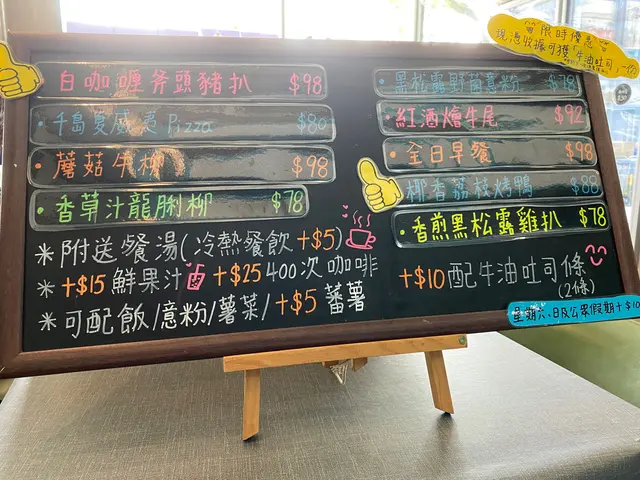 白咖喱斧頭豬扒 $98
千島夏威夷 Pizza $80
蘑菇牛柳 $98
香草汁龍脷柳 $78
*附送餐湯(冷熱餐飲 +$5)
* +$15 鮮果汁 +$25 400次咖啡
*可配飯/意粉/薯菜/+$5 蕃薯
限時優惠
現憑收據可獲「牛油吐司」一份
黑松露野菌意粉 $78
紅酒燴牛尾 $92
全日早餐 $98
椰香荔枝烤鴨 $88
香煎黑松露雞扒 $78
+$10 配牛油吐司條
(2條)
星期六、日及公眾假期+$10